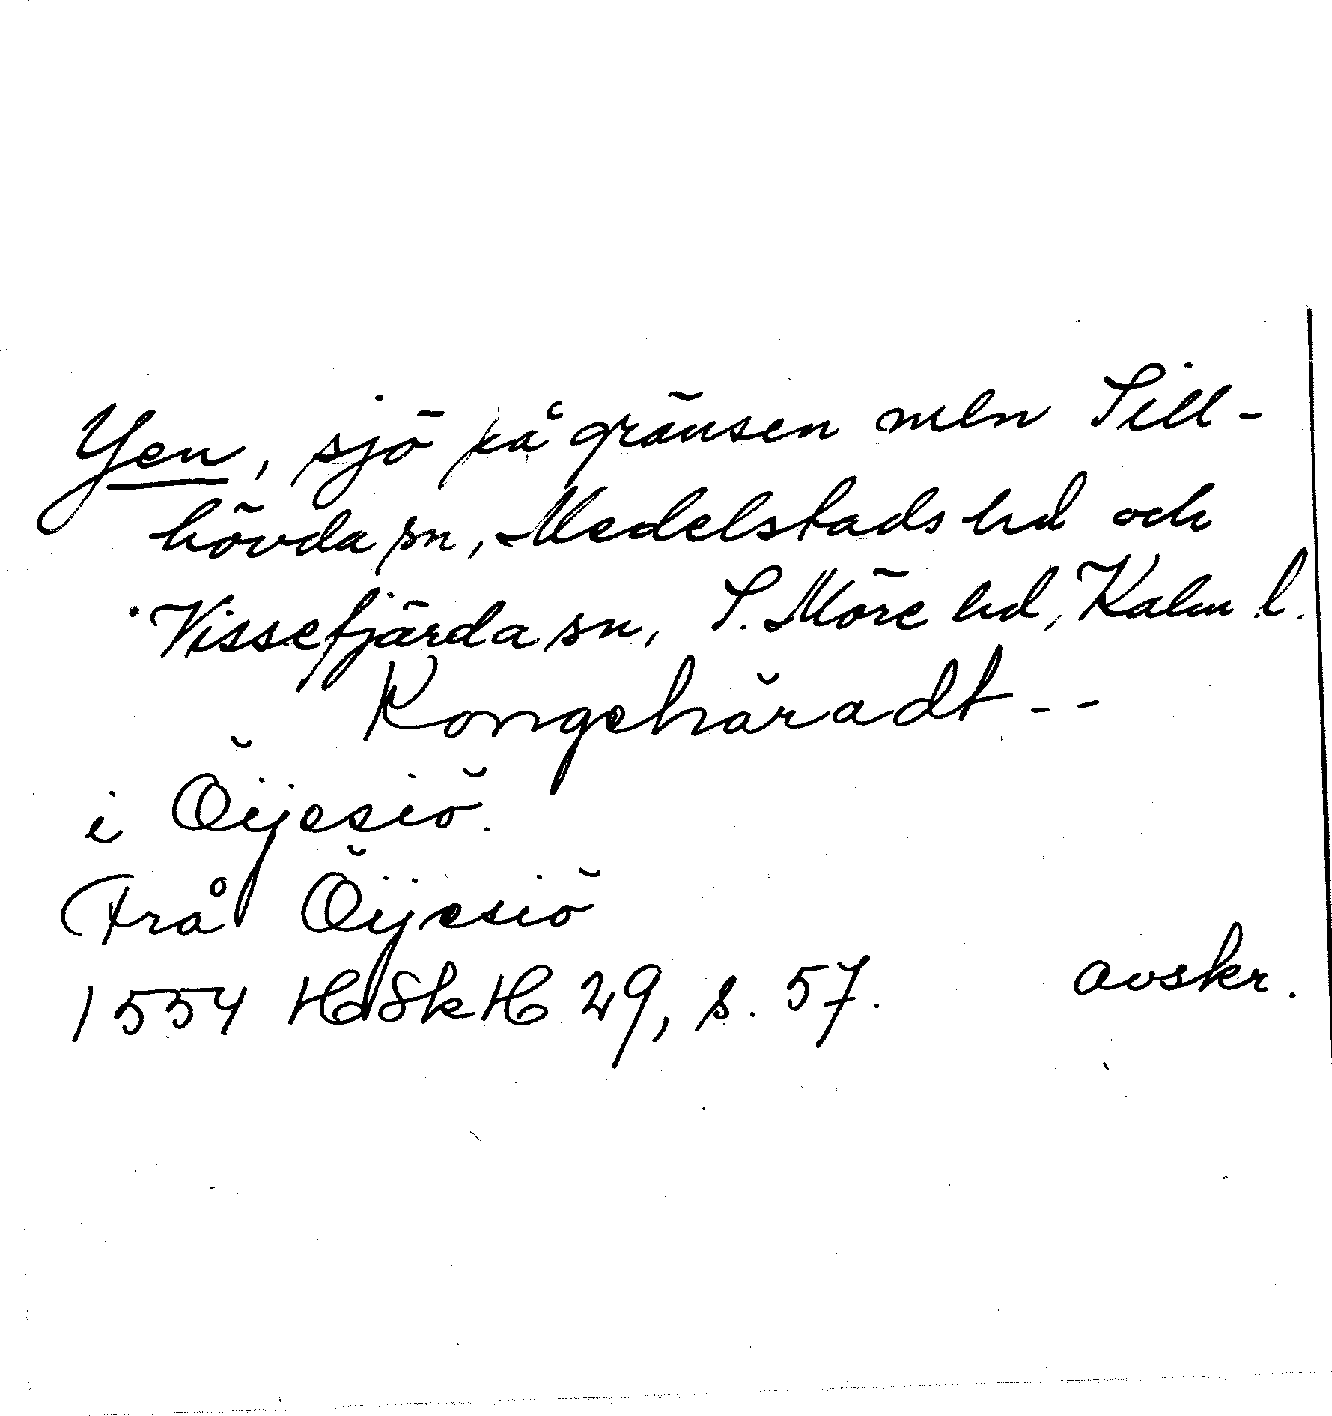 Yen, sjö på gränsen mln Till-
hövda sn, Medelstads hd och
Vissefjärda sn, S. Möre hd, Kalm l.
Kongehäradt --
i Öijesiö.
Från Öijesiö
1554 HdSkH 29, s. 57. avskr.